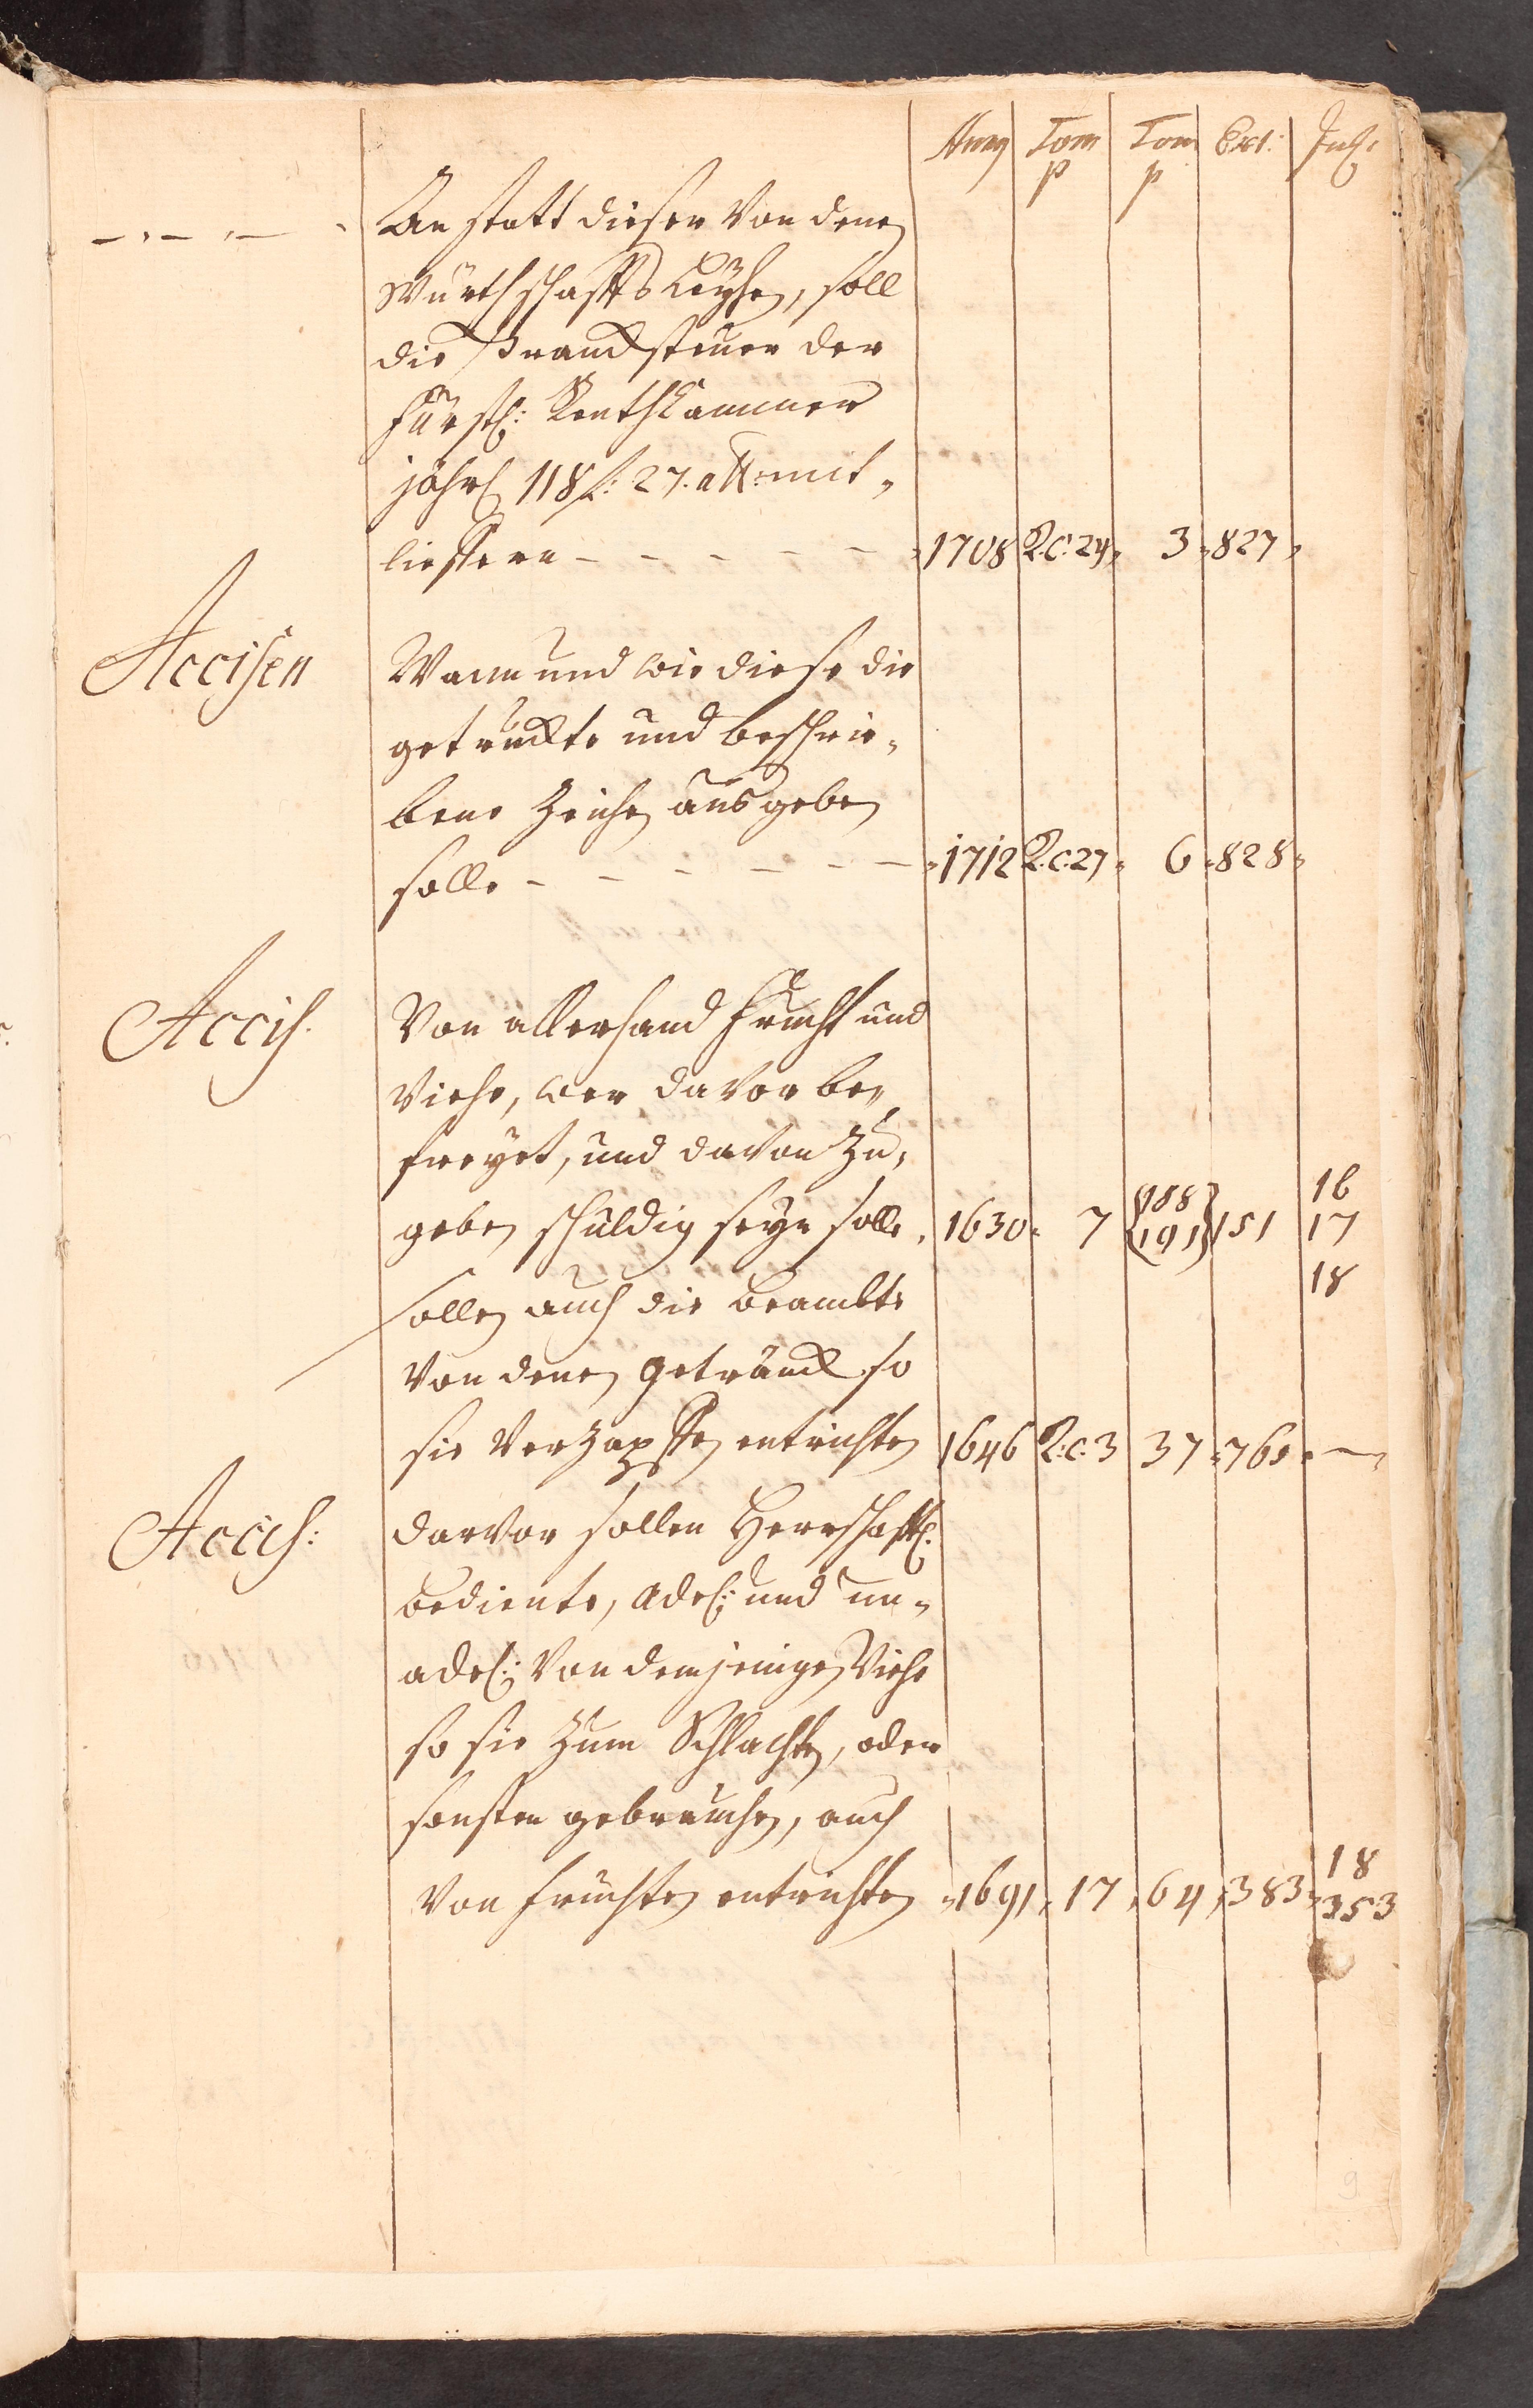 Anno Tom Tom Ext: Inst:
p p
An statt dieser Von denen
Würthschafts Leÿhen, soll
die Trancksteuer der
Fürstl: Renthkammer
jährl 118 f: 27. alb: mit
lieffern - - - - - 1708 R.C. 24, 3 827
Accisen Wann und wie diese die
getruckte und beschrie-
bene Zeichen ausgeben
solle - - - - - - 1712 R.C. 27 6 828
Accis. Von allerhand Frucht und
Viehe, wer davon be-
freÿet, und davon Zu-
geben schuldig seÿn solle, 1630 7 {188 191} 151 16
17
18
sollen auch die beambte
Von denen geträncke so
sie Verzapffen entrichten 1646 R.C. 3 37 760 —
Accis: darvon sollen Herrschafftl:
bediente, adel: und un-
adel: Von demjenigen Viehe
so sie zum Schlachten, oder
sonsten gebrauchen, auch
Von früchten entrichten 1691 17 64 383 18
353
9